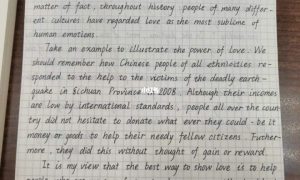 matter of fact, throughout history people of many differ-
ent cultures have regarded love as the most sublime of
human emotions.
Take an example to illustrate the power of love. We
should remember how Chinese people of all ethnicities re-
sponded to the help to the victims of the deadly earth-
quake in Sichuan Province 2008. Although their incomes
are low by international standards, people all over the coun
try did not hesitate to donate what ever they could - be it
money or goods to help their needy fellow citizens. Further-
more, they did this without thought of gain or reward.
It is my view that the best way to show love is to help
people who